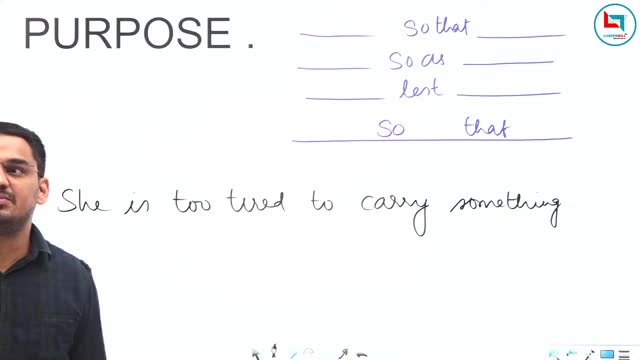 PURPOSE .
so that
so as
lest
so that
She is too tired to carry something